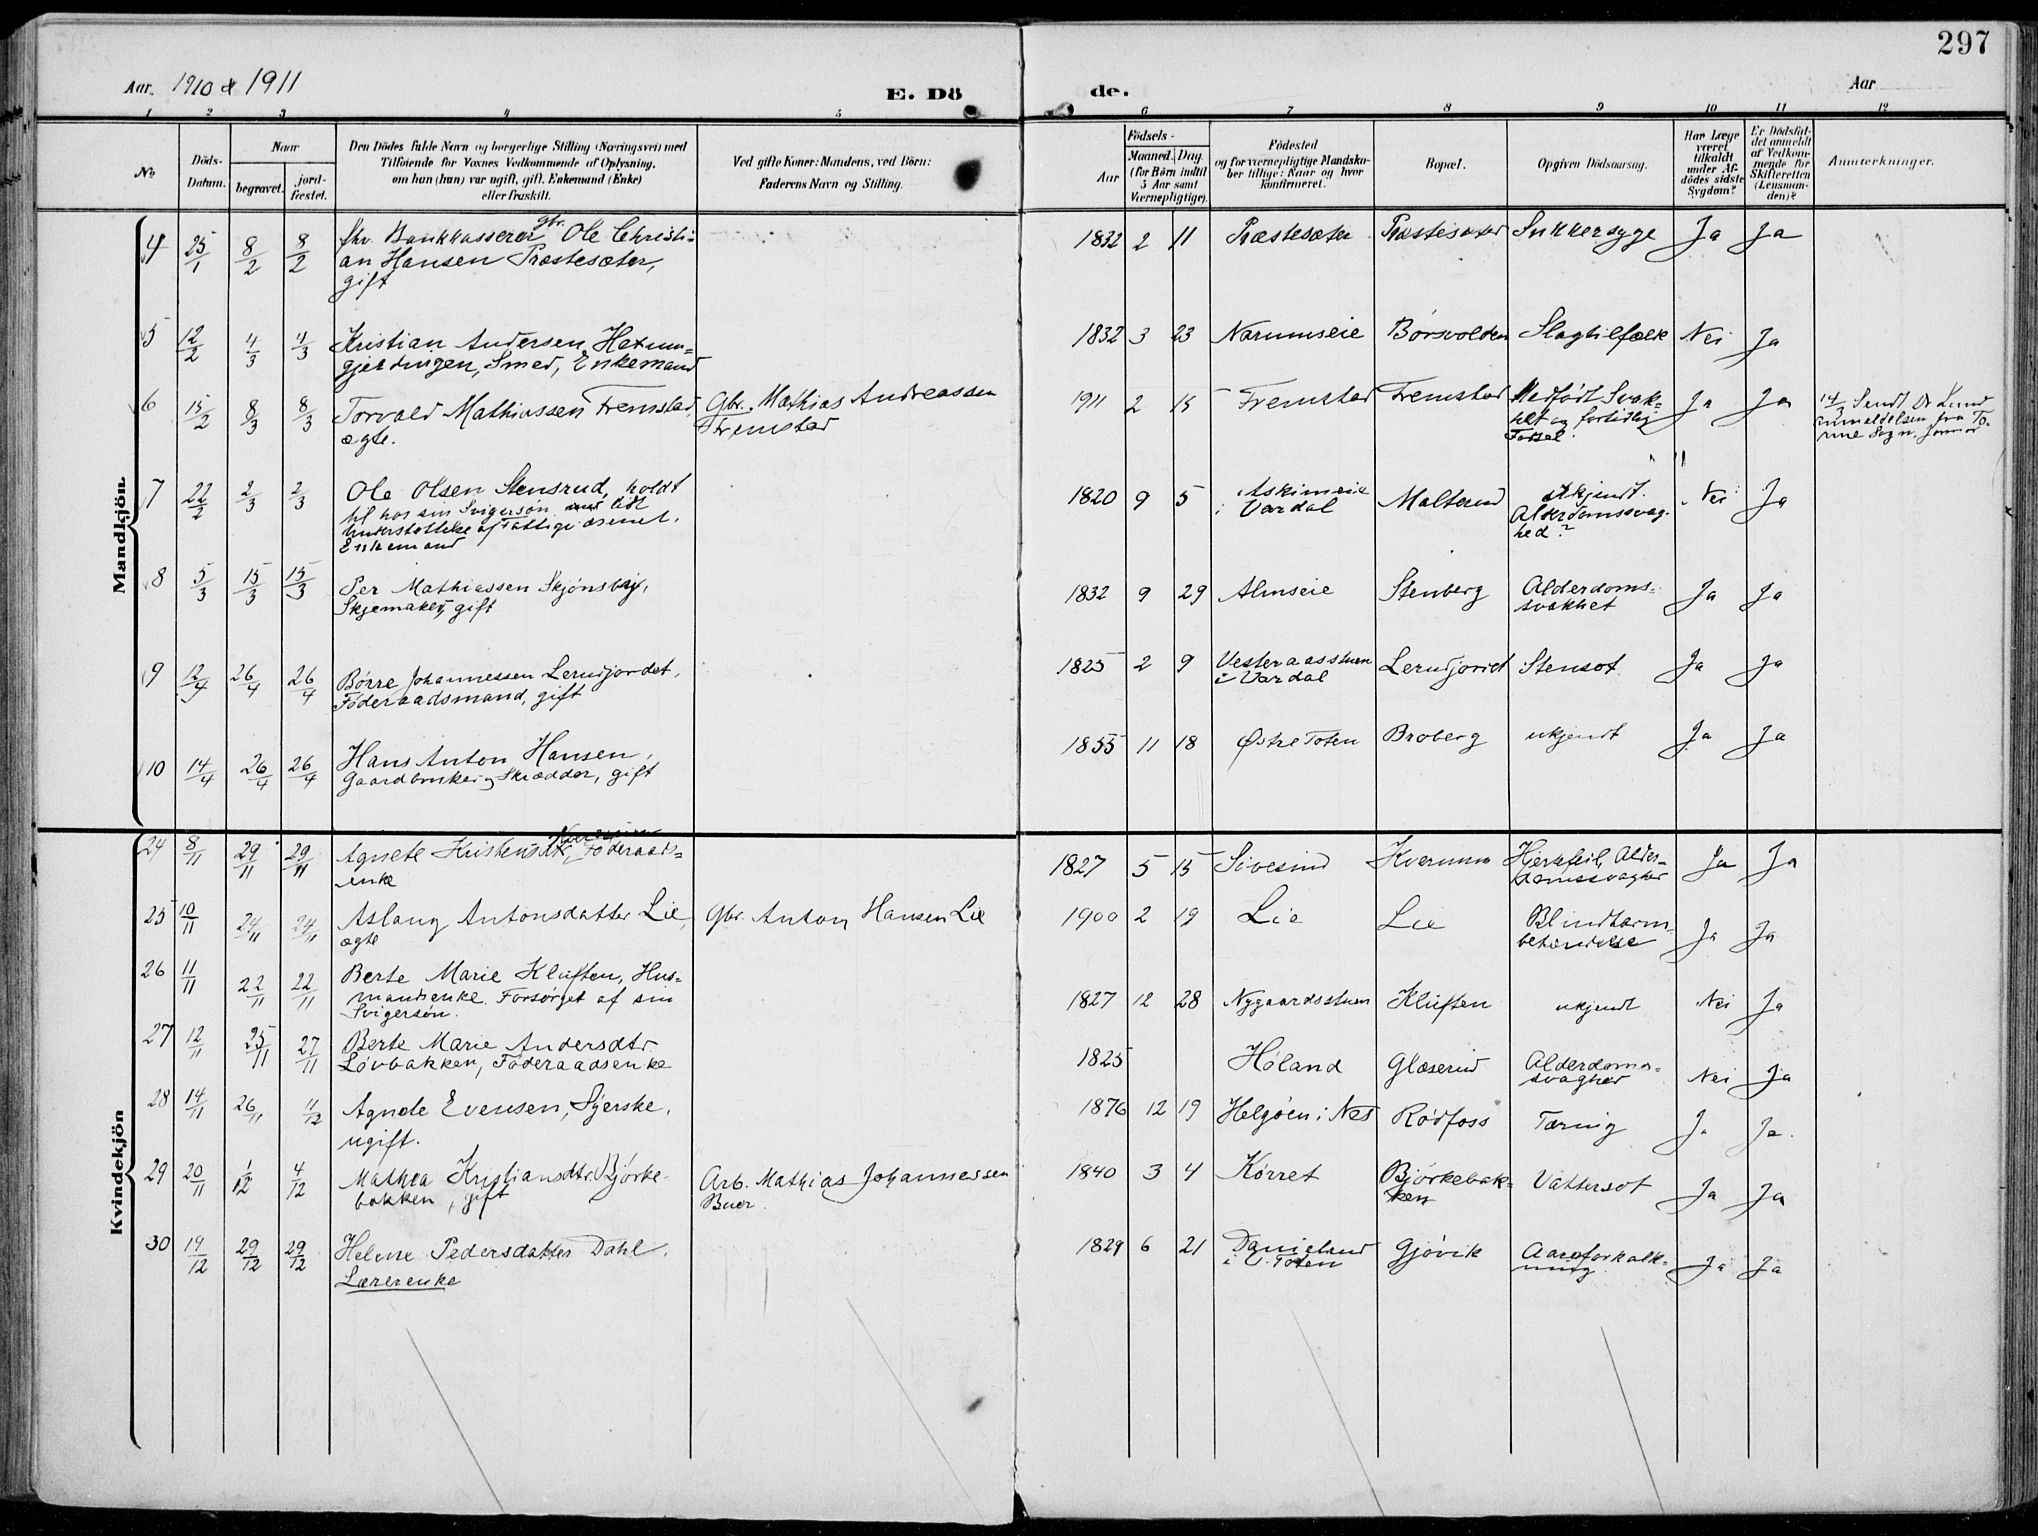 297
Aar. 1910 & 1911
E. Dö
de.
Aar
1 2 3 4 5 6 7 8 9 10 11 12
No
Döds-
Datum.
Naar
begravet.
jord-
fæstet.
Den Dödes fulde Navn og borgerlige Stilling (Næringsvei) med
Tilföiende for Voxnes Vedkommende af Oplysning,
om han (hun) var ugift, gift, Enkemand (Enke)
eller fraskilt.
Ved gifte Koner: Mandens, ved Börn:
Faderens Navn og Stilling.
Födsels-
Aar
Maaned. Dag.
(for Börn indtil
5 Aar samt
Værnepligtige).
Födested
og for værnepligtige Mandska-
ber tillige: Naar og hvor
konfirmeret.
Bopæl.
Opgiven Dödsaarsag.
Har Læge
været
tilkaldt
under Af-
dödes sidste
Sygdom?
Er Dödsfal-
det anmeldt
af Vedkom-
mende for
Skifteretten
(Lensman-
den)?
Anmærkninger.
Mandkjön.
4 25/1 8/2 8/2 fhv. Bankkasserer gbr. Ole Christi-
an Hansen Præstesæter,
gift
1832 2 11 Præstesæter Præstesæter Sukkersyge Ja Ja
5 12/2 4/3 4/3 Kristian Andersen Hexum-
gjerdingen, Smed, Enkemand
1832 3 23 Narumseie Børsvolden Slagtilfælde Nei Ja
6 15/2 8/3 8/3 Torvald Mathiassen Fremstad,
ægte.
Gbr. Mathias Andreassen
Fremstad
1911 2 15 Fremstad Fremstad Medfødt Svak-
het og fortidlig
Fødsel.
Ja Ja
14/3 Sendt Dr Lund
anmeldelsen fra To-
7 22/2 2/3 2/3 Ole Olsen Stensrud, holdt
til hos sin Svigersøn med lidt
Understøttelse af Fattigvæsenet,
Enkemand
1820 9 5 Askimeie
i Vardal
Malterud ukjendt.
Alderdomssvag-
hed?
Nei Ja
8 5/3 15/3 15/3 Per Mathiassen Skjønsby,
Skjemaker, gift
1832 9 29 Almseie Stenberg Alderdoms-
svakhet
Ja Ja
9 12/4 26/4 26/4 Børre Johannessen Lerudjordet,
Föderaadsmand, gift
1825 2 9 Vesteraasstuen
i Vardal
Lerudjordet Stensot Ja Ja
10 14/4 26/4 26/4 Hans Anton Hansen,
Gaardbruker og Skrædder, gift
1855 11 18 Østre Toten Broberg ukjendt Ja Ja
Kvindekjön
24 8/11 29/11 29/11 Agnete Kristensdtr, Föderaads-
enke
1827 5 15 Sivesind Kvernum Hjertefeil, Alder-
domssvaghed
Ja Ja
25 10/11 24/11 24/11 Aslaug Antonsdatter Lie,
ægte
Gbr. Anton Hansen Lie
1900 2 19 Lie Lie Blindtarm-
betændelse
Ja Ja
26 11/11 22/11 22/11 Berte Marie Kluften, Hus-
mandsenke. Forsørget af sin
Svigersøn.
1827 12 28 Nygaardsstuen Kluften ukjendt Nei Ja
27 12/11 25/11 27/11 Berte Marie Andersdtr
Løvbakken, Føderaadsenke
1825 Høland Glæserud Alderdoms-
svaghed
Nei Ja
28 14/11 26/11 11/12 Agnete Evensen, Syerske,
ugift.
1876 12 19 Helgøen i Nes Rødfoss Tæring Ja Ja.
29 20/11 1/12 4/12 Mathea Kristiansdtr. Bjørke-
bakken, gift
Arb. Mathias Johannessen
Buer.
1840 3 4 Kørret Bjørkebak-
ken
Vattersot Ja Ja
30 19/12 29/12 29/12 Helene Pedersdatter Dahl,
Lærerenke
1829 6 21 Danieland
i V. Toten
Gjøvik Aareforkalk-
ning
Ja Ja